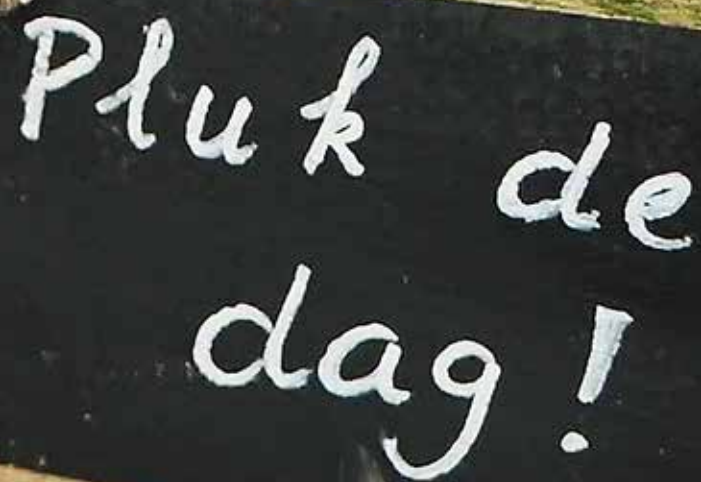 Pluk de
dag!